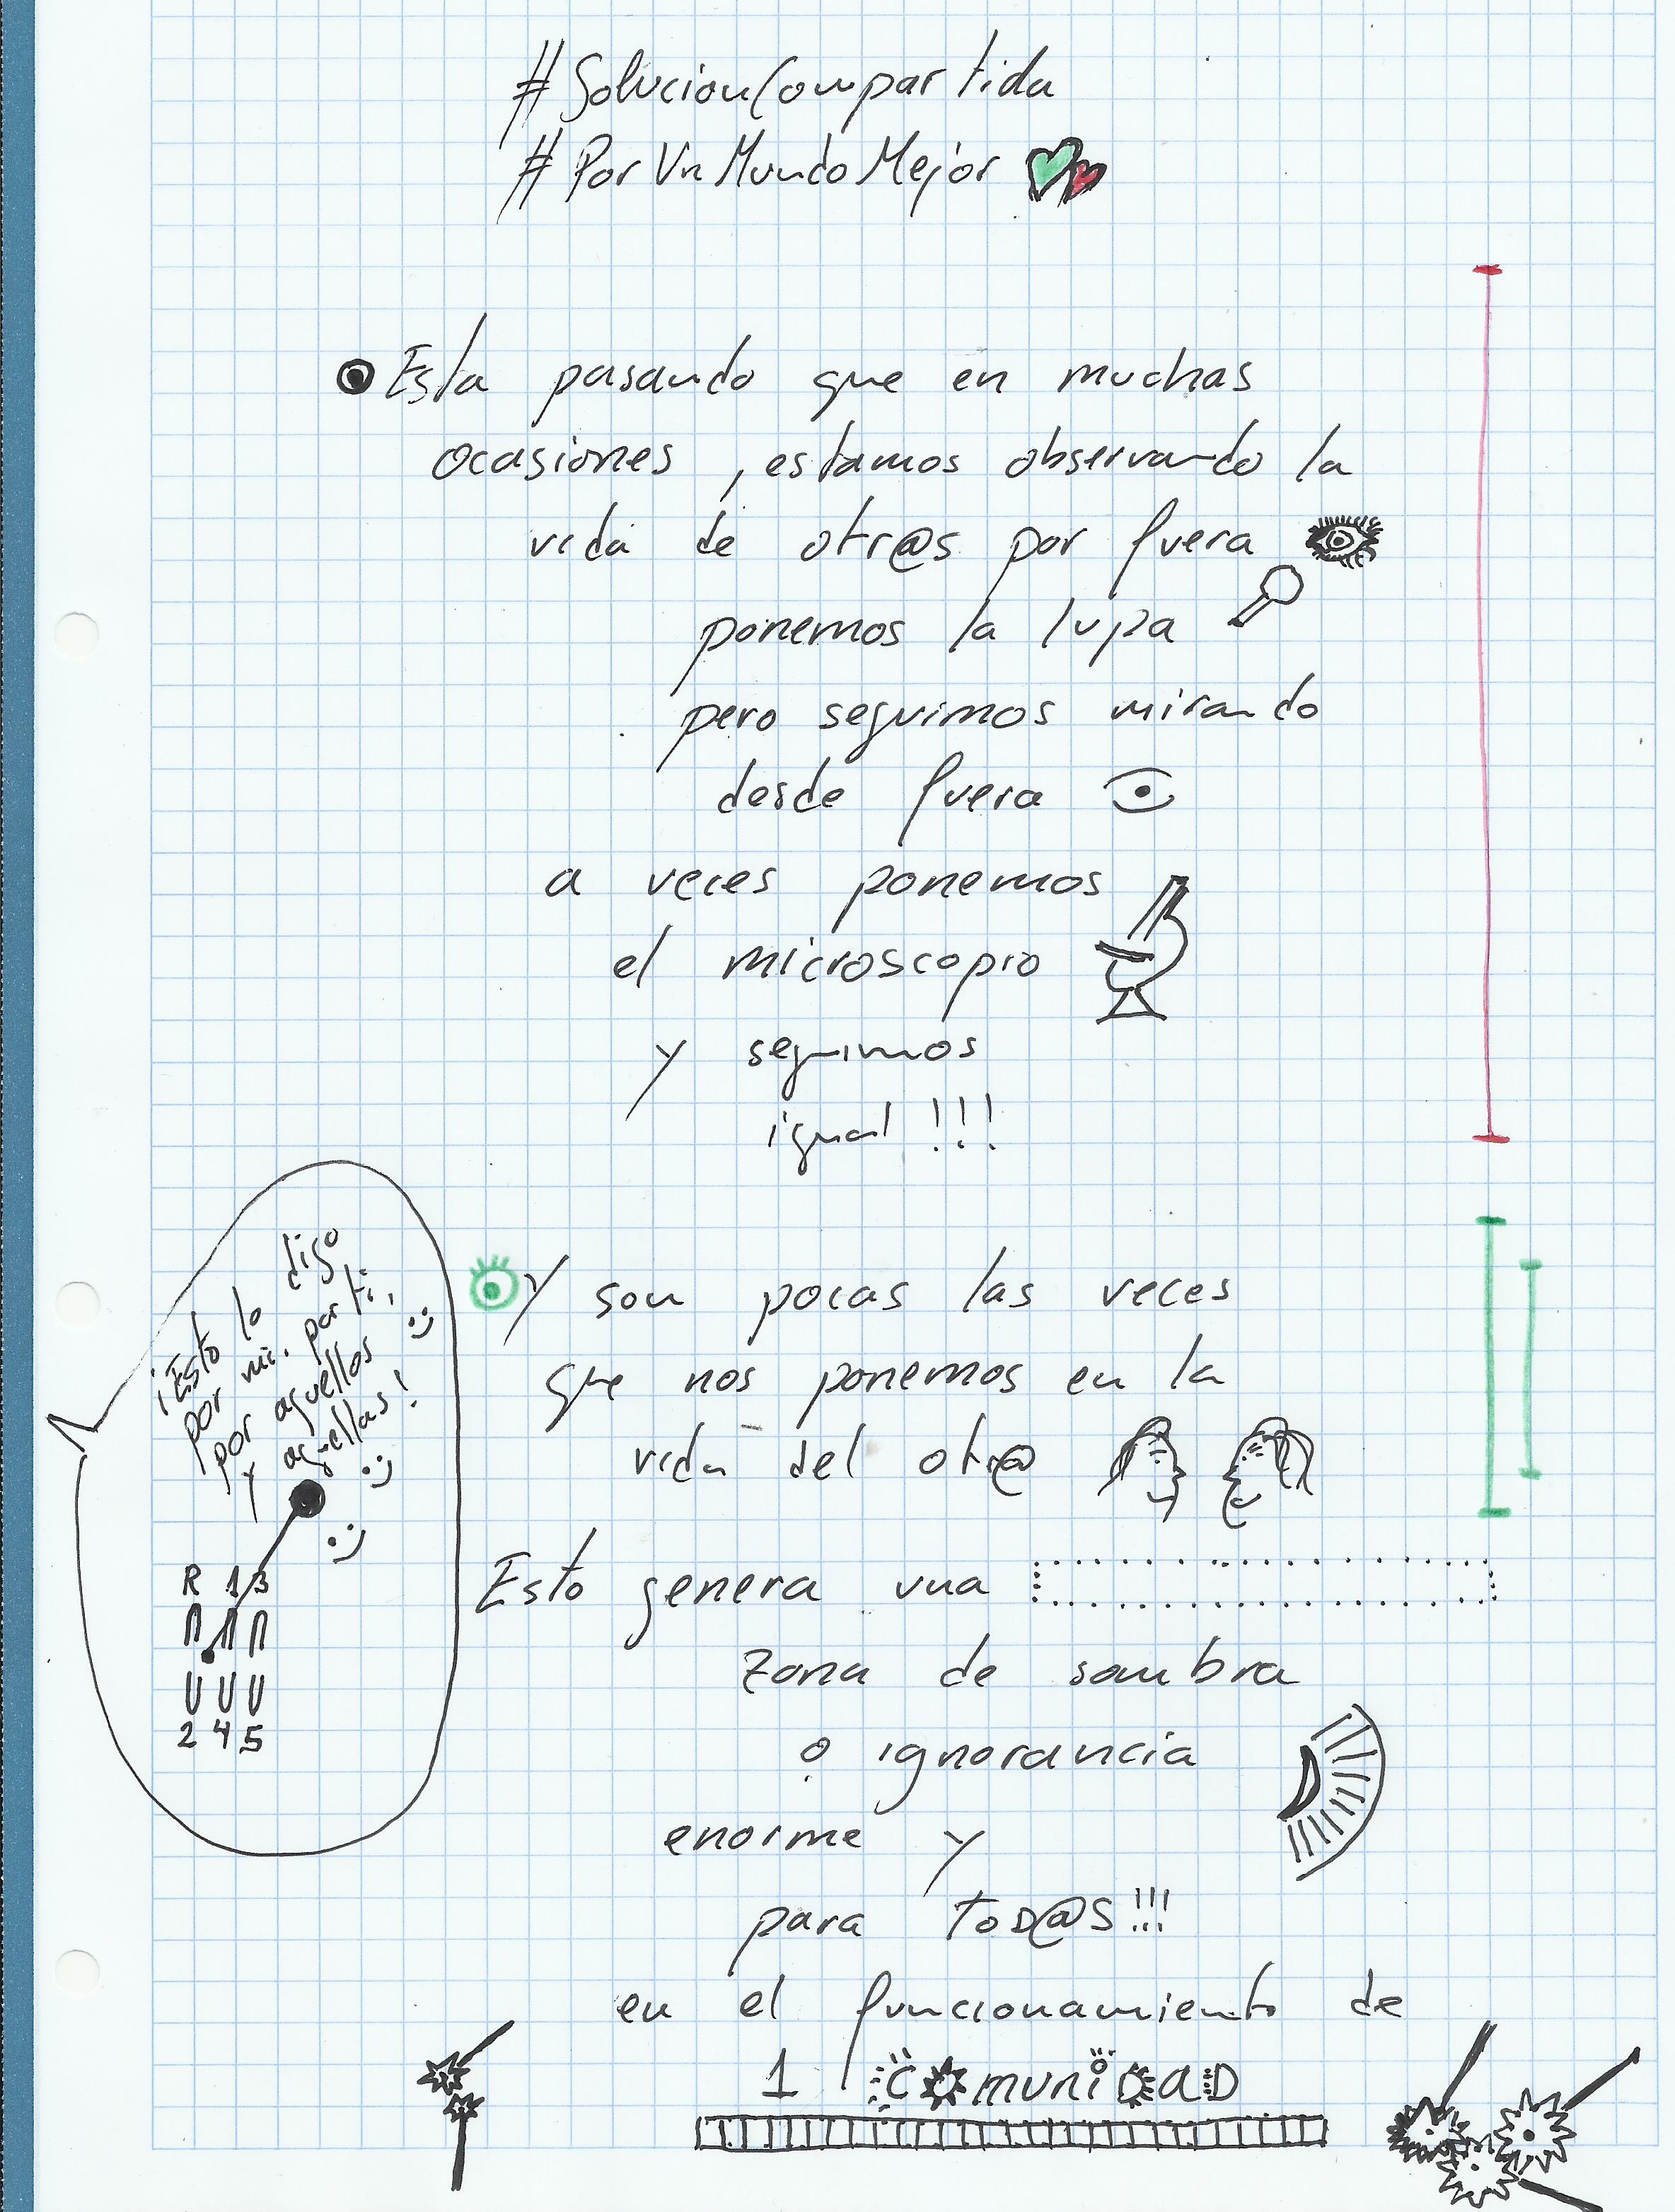 #SolucionCompartida
#PorUnMundoMejor
Esta pasando que en muchas
ocasiones, estamos observando la
vida de otr@s por fuera
ponemos la lupa
pero seguimos mirando
desde fuera
a veces ponemos
el microscopio
y seguimos
igual !!!
¡Esto lo digo
por mi, por ti,
por aquellos
y aquellas!
R 1 3
2 4 5
Y son pocas las veces
que nos ponemos en la
vida del otr@
Esto genera una
zona de sombra
o ignorancia
enorme y
para tod@s!!!
en el funcionamiento de
1 comuniDaD